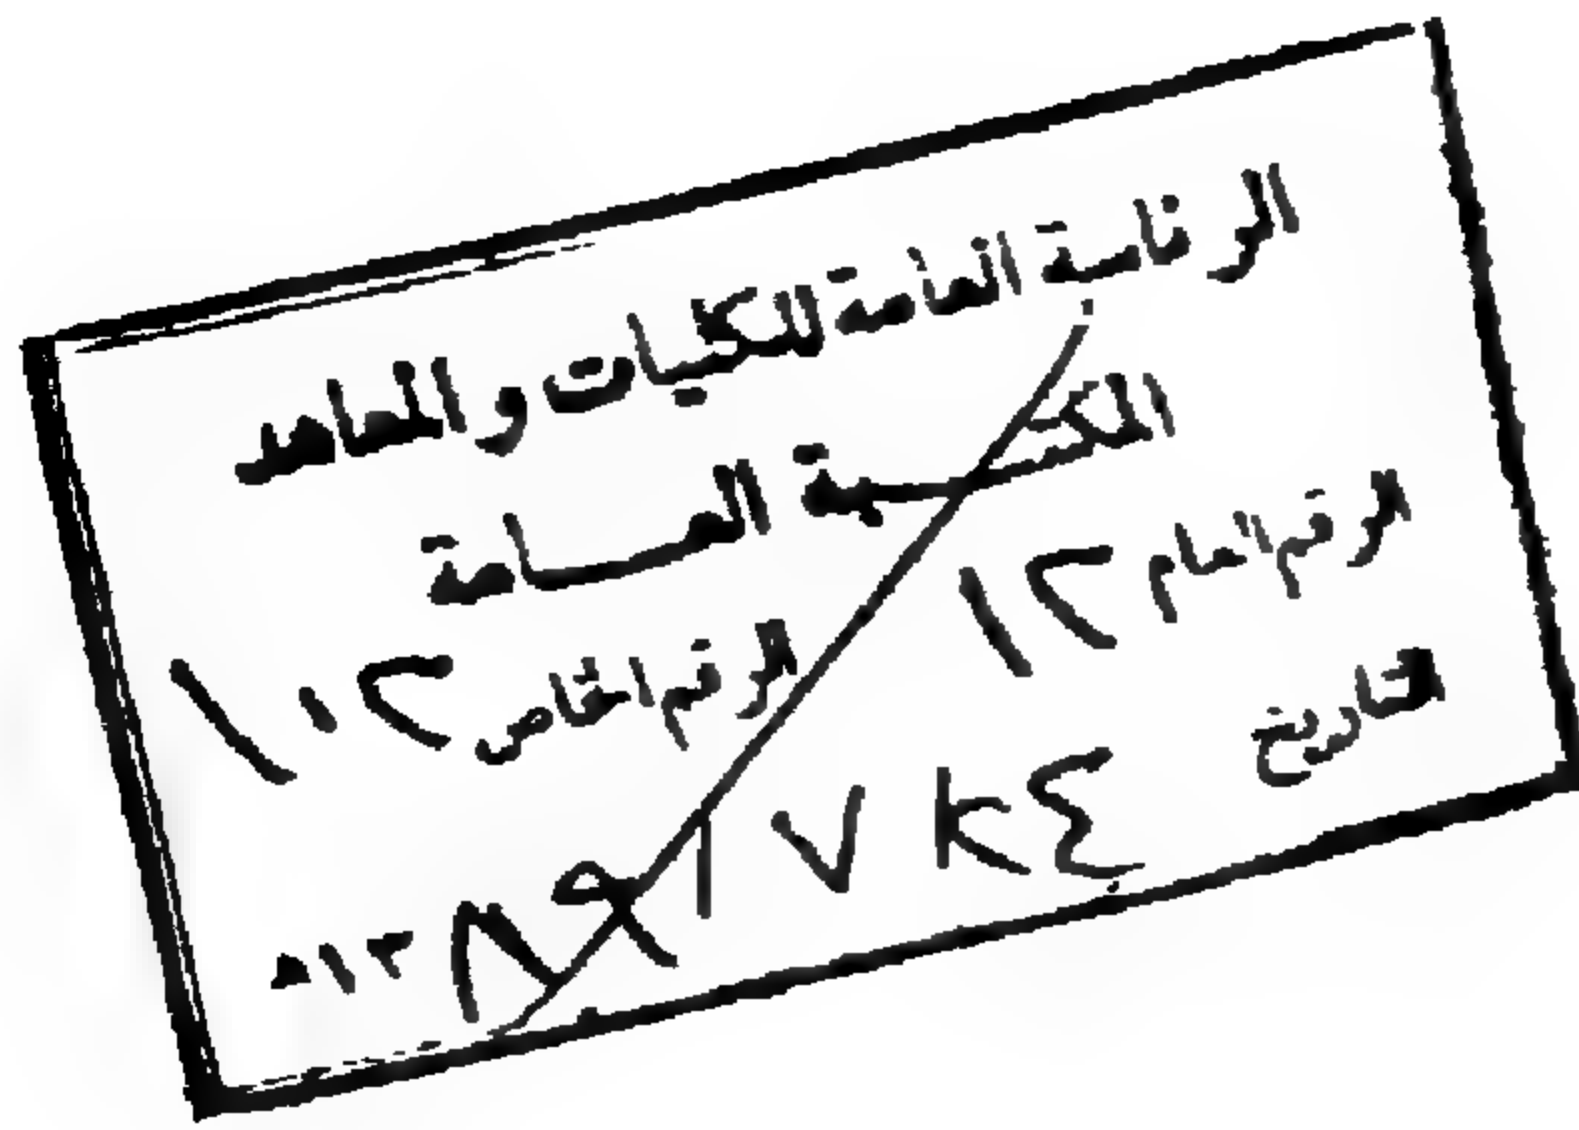 الرئاسة العامة للكليات والمعاهد
المكتبة العامة
الرقم العام ١٢ الرقم الخاص ١٠٢
التاريخ ٢٤ / ٧ / ١٣٨٩ه